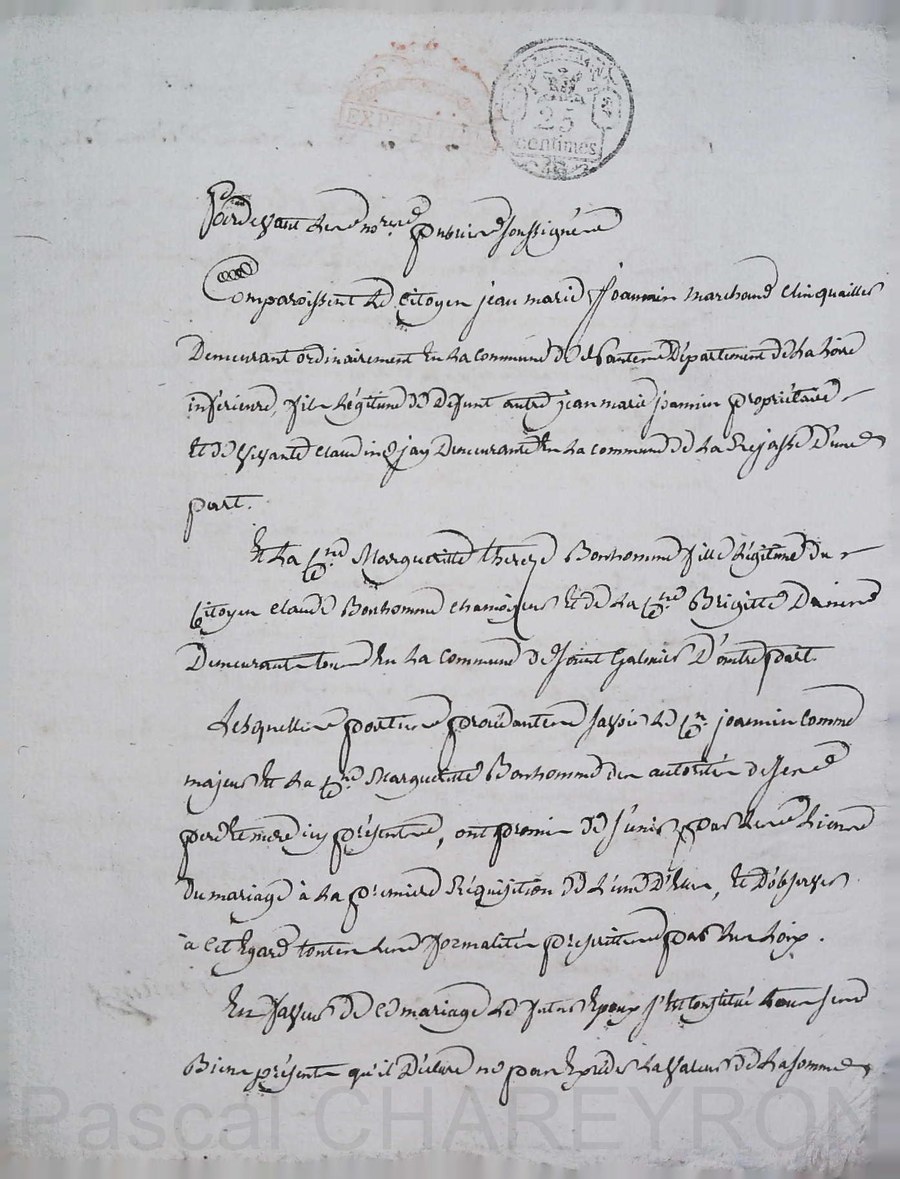 EXPEDITION
25
centimes
Pardevant les nores publics soussignés
Comparoissent le citoyen jean marie joannin marchand clinquailler
Demeurant ordinairement en la commune de Nantes Département de la Loire
inférieure, fils légitime de defunt autre jean marie joannin propriétaire
et de vivante claudine jay Demeurante en la commune de la Rejasse D'une
part.
Et la Cne Margueritte thereze Bonhomme fille légitime du
Citoyen claude Bonhomme chamoyeur et de la Cne Brigitte
Demeurants tous en la commune de Saint Galmier D'autre part.
Lesquelles parties procédantes savoir le Cn joannin comme
majeur et la Cne Margueritte Bonhomme des autorités de ses
pere et mere icy présents, ont promis de s'unir par les liens
du mariage à la premiere réquisition de l'une d'elles, et d'observer
à cet égard toutes les formalités prescrittes par les loix.
En faveur de ce mariage le futur Epoux s'est constitué tous ses
Biens présents qu'il Déclare ne pas Exceder la valeur de la somme
Pascal CHAREYRON